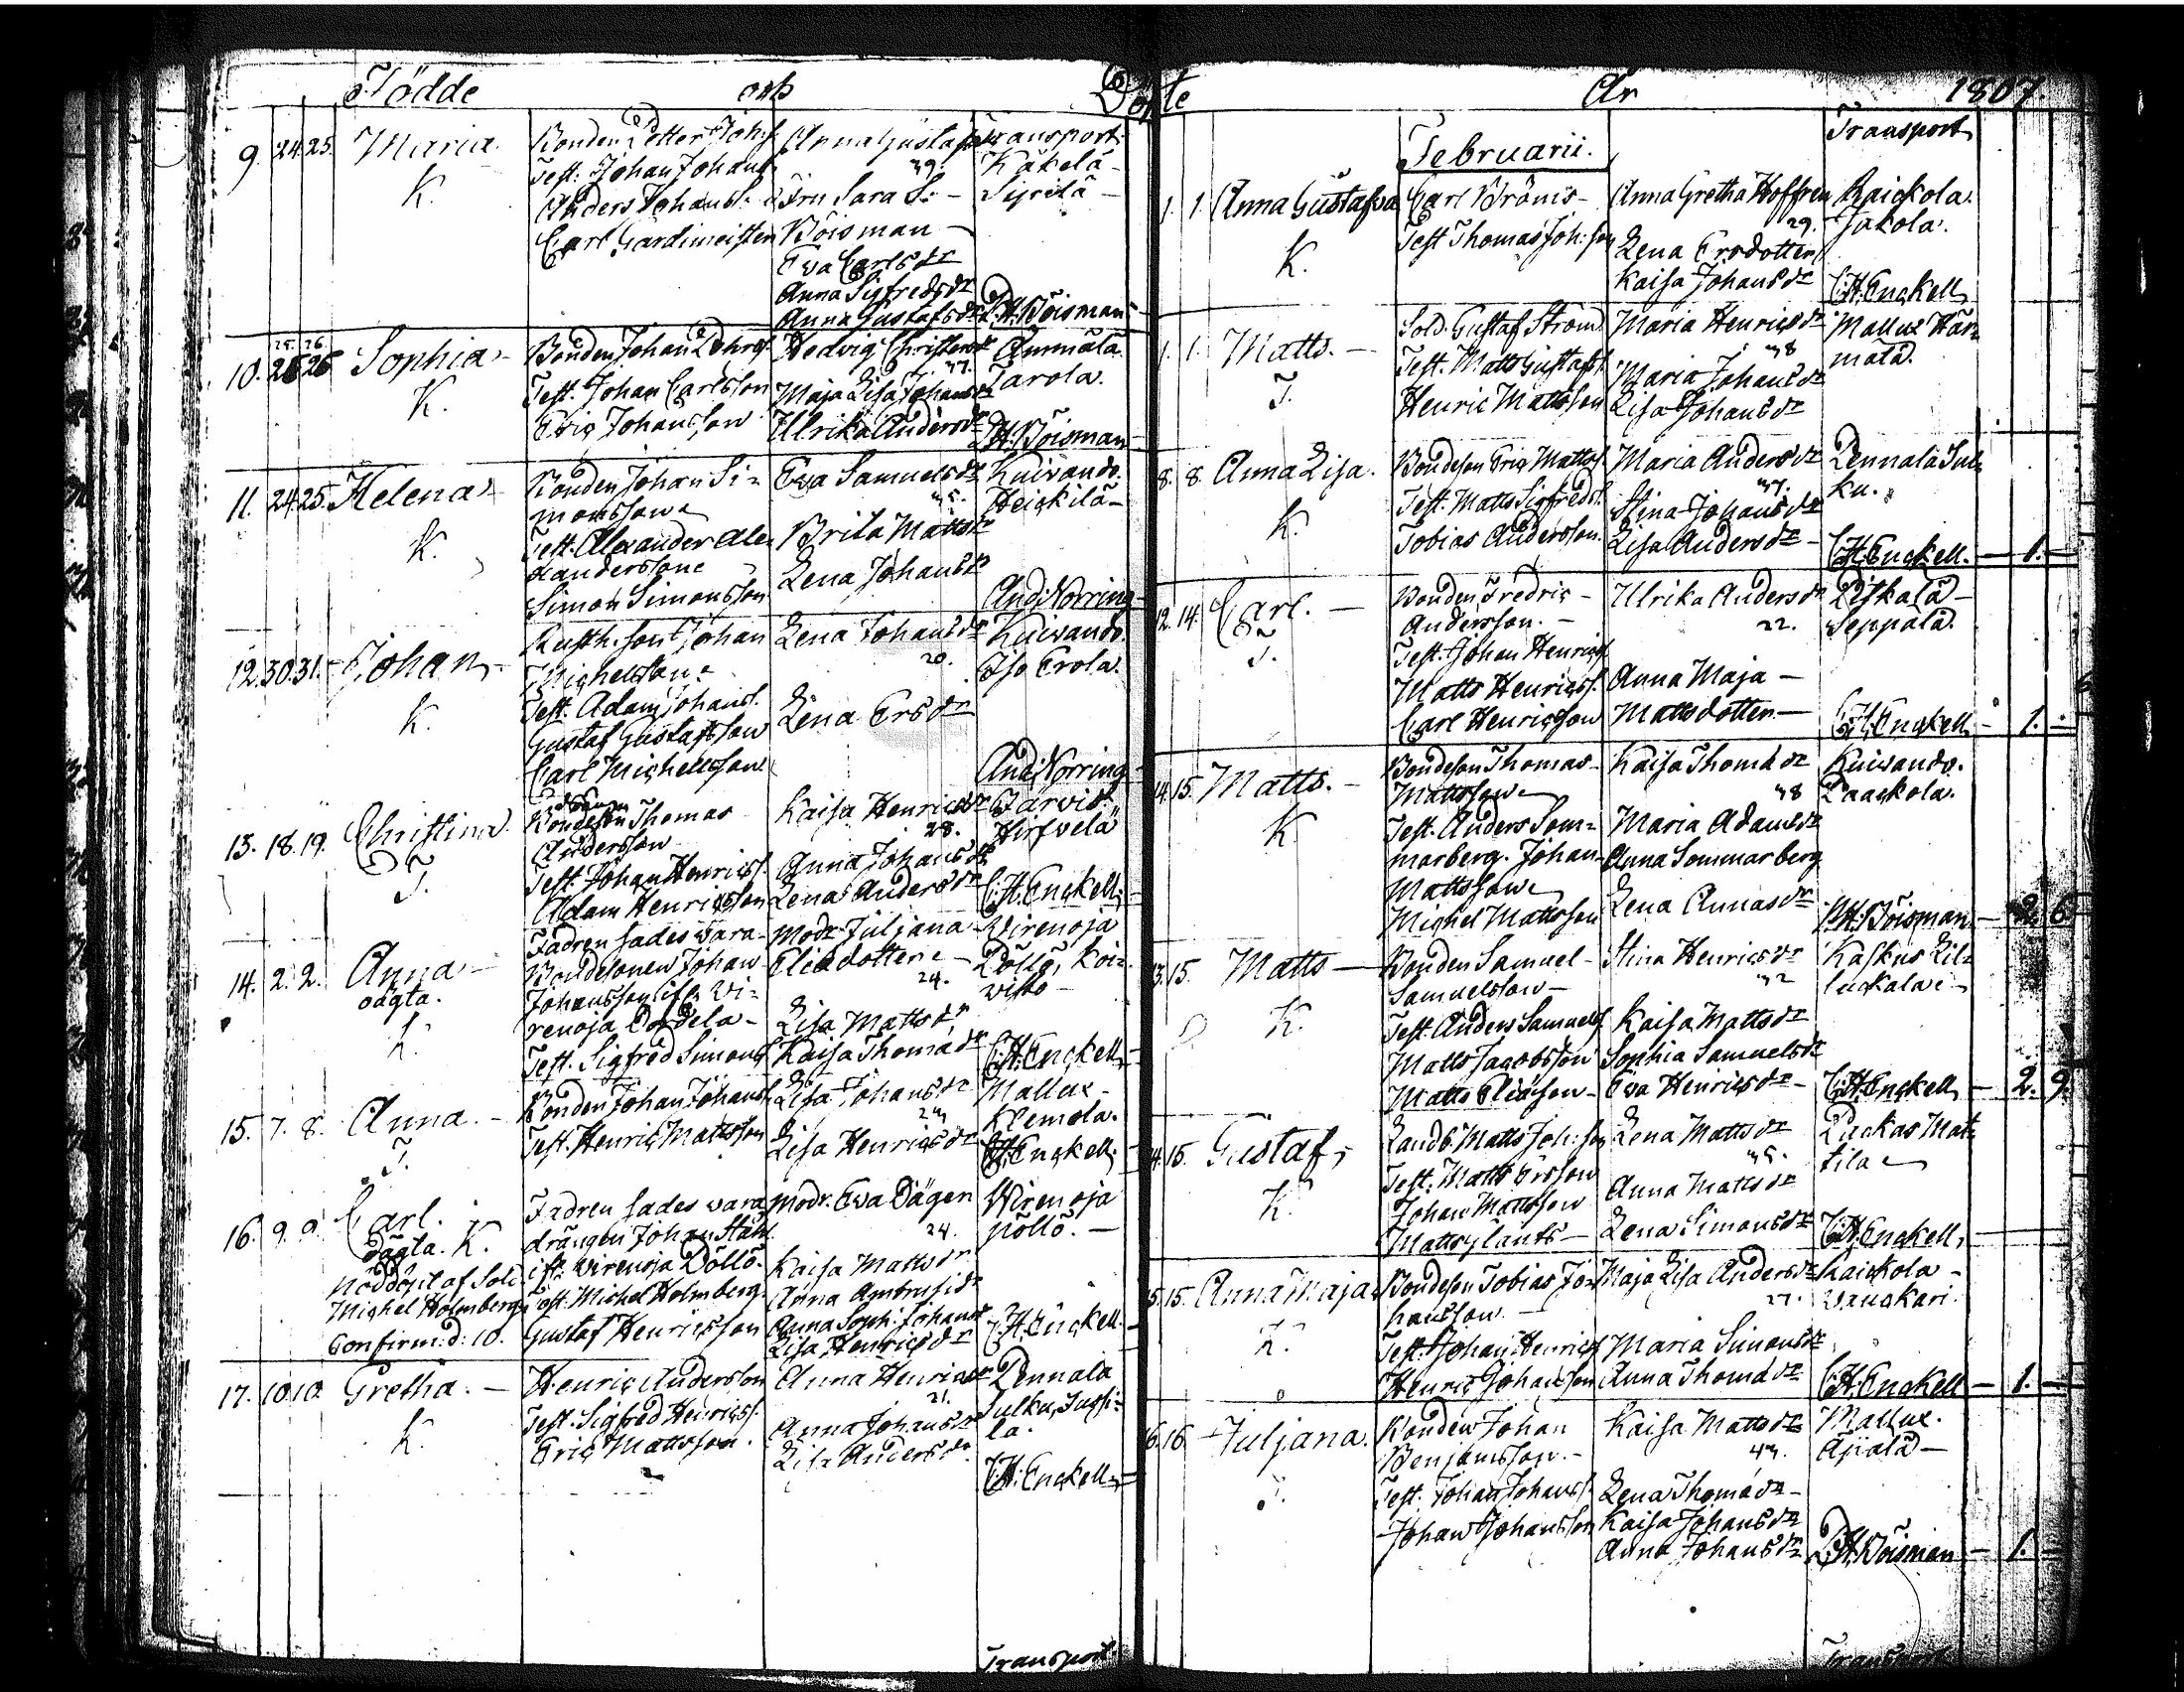 Födde och Döpte År 1807
9. 24. 25. Maria. K.
Bonden Petter Joh:s.
Test: Johan Johans.
Anders Johanss.
Carl Gardimeister
Anna Gustafsdr
39.
Fru Sara S:
Böisman
Eva Carlsdr
Anna Sigfredsdr
Anna Gustafsdr
Transport.
Käkelä
Syrilä
P.H. Böisman
10. 25. 26. Sophia K.
Bonden Johan
Test. Johan Carlsson
Eric Johansson
Hedvig Christersdr
37.
Maja Lisa Johansdr
Ulrika Andersdr
Ammälä
Tarola.
P.H. Böisman
11. 24. 25. Helena K.
Bonden Johan Si-
monsson
Test. Alexander Ale-
xandersson
Simon Simonsson
Eva Samuelsdr
35.
Brita Mattsdr
Lena Johansdr
Kuivando.
Heickilä
And: Norring
12. 30. 31. Johan K.
Rusth. son Johan
Michelsson
Test. Adam Johanss.
Gustaf Gustafsson
Carl Michelsson
Lena Johansdr
20.
Lena Ersdr
Kuivando.
Iso Erola.
And: Norring
13. 18. 19. Christina T.
Bondeson Thomas
Andersson
Test. Johan Henricss.
Adam Henricsson
Kaisa Henricsdr
28.
Anna Johansdr
Lena Andersdr
Järvis.
Hirfvelä
C.H. Enckell
14. 2. 2. Anna
oägta. K.
Fadren sades vara
Bondesonen Johan
Johansson ifr. Vi-
renoja
Test. Sigfred Simons.
Modr Juljana
Eliædotter
24.
Lisa Mattsdr
Kaisa Thomædr
Wirenoja
Pöllö, Koi-
visto
C.H. Enckell
15. 7. 8. Anna. T.
Bonden Johan Johans.
Test. Henric Mattsson
Lisa Johansdr
23
Lisa Henricsdr
Mallux
Klemola.
C.H. Enckell
16. 9. 9. Carl.
oägta. K.
Nöddöpt af Sold.
Michel Holmberg
Confirm: d: 10.
Fadren sades vara
drängen Johan Ståhl
ifr. Wirenoja Pöllö.
Test. Michel Holmberg.
Gustaf Henricsson
Modr. Eva Dägen
24.
Kaisa Mattsdr
Anna
Anna Soph. Johansdr
Lisa Henricsdr
Wirenoja
Pöllö.
C.H. Enckell
17. 10. 10. Gretha. K.
Henric Andersson
Test. Sigfred Henricss.
Eric Mattsson.
Anna Henricsdr
21.
Anna Johansdr
Lisa Andersdr
Pennala
Sulku, Jussi-
la.
C.H. Enckell
Transport.
Februarii.
Transport
1. 1. Anna Gustafva K.
Carl Brönis
Test Thomas Joh:son
Anna Gretha Hoffren
29.
Lena Ersdotter
Kaisa Johansdr
Raickola.
Jakola.
C.H. Enckell
1. 1. Matts. T.
Sold. Gustaf Ström.
Test. Matts Gustafss.
Henric Mattsson
Maria Henricsdr
38
Maria Johansdr
Lisa Johansdr
Mallux Här-
mälä.
8. 8. Anna Lisa. K.
Bondeson Eric Mattss.
Test. Matts Sigfredss.
Tobias Andersson.
Maria Andersdr
37.
Stina Johansdr
Lisa Andersdr
Pennala Sul-
ku.
C.H. Enckell. 1.
12. 14. Carl. T.
Bonden Fredric
Andersson.
Test. Johan Henricss
Matts Henricss.
Carl Henricsson
Ulrika Andersdr
22.
Anna Maja
Mattsdotter
Pitkälä
Seppälä.
C.H. Enckell 1.
14. 15. Matts. K.
Bondeson Thomas
Mattsson
Test. Anders Som-
marberg. Johan
Mattsson
Michel Mattsson
Kaisa Thomædr
38
Maria Adamsdr
Anna Sommarberg
Lena Annasdr
Kuivando.
Laackola.
P.H. Böisman 2. 6.
13. 15. Matts K.
Bonden Samuel
Samuelsson
Test. Anders Samuels.
Matts Jacobsson
Matts Eliæson
Stina Henricsdr
32
Kaisa Mattsdr
Sophia Samuelsdr
Eva Henricsdr
Kaskus Lil-
luckala
C.H. Enckell 2. 9.
14. 15. Gustaf, K.
Landb: Matts Joh:son
Test. Matts Ersson
Johan Mattsson
Matts Glants
Lena Mattsdr
35.
Anna Mattsdr
Lena Simonsdr
Luckas Mat-
tila
C.H. Enckell
15. 15. Anna Maja. K.
Bondeson Tobias Jo-
hansson.
Test. Johan Henricss
Henric Johansson
Maja Lisa Andersdr
27.
Maria Simonsdr
Anna Thomædr
Raickola
C.H. Enckell 1.
16. 16. Juljana.
Bonden Johan
Benjamsson.
Test. Johan Johanss.
Johan Johansson
Kaisa Mattsdr
43.
Lena Thomædr
Kaisa Johansdr
Anna Johansdr
Mallux.
Äjjälä
P.H. Böisman 1.
Transport